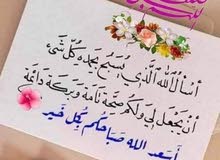 أسأل الله الذي يسبح بحمده كل شيء
أن يجعل لي ولكم صحة تامة وبركة دائمة
أسعد الله صباحكم بكل خير